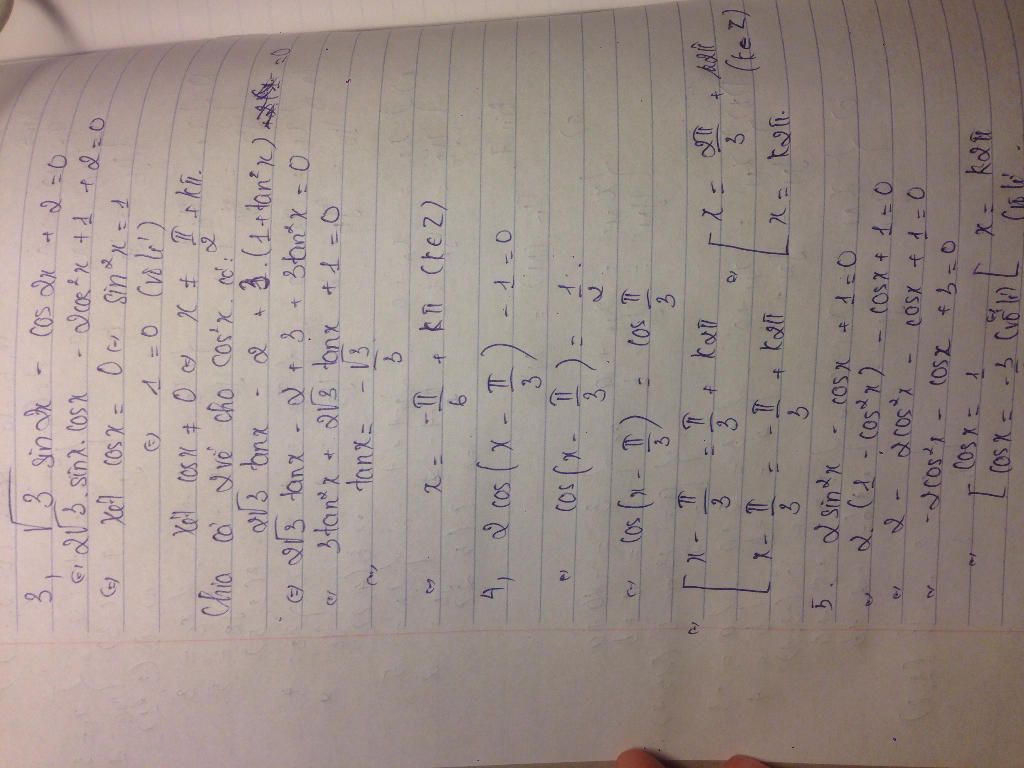 3, √3 sin2x - cos2x + 2 = 0
⇔ 2√3 . sinx . cosx - 2cos²x + 1 + 2 = 0
⇔ Xét cosx = 0 ⇔ sin²x = 1
⇔ 1 = 0 (vô lí)
Xét cosx ≠ 0 ⇔ x ≠ π/2 + kπ.
Chia cả 2 vế cho cos²x có:
2√3 tanx - 2 + 3.(1 + tan²x) = 0
⇔ 2√3 tanx - 2 + 3 + 3tan²x = 0
⇔ 3tan²x + 2√3 tanx + 1 = 0
⇔ tanx = -√3/3
⇔ x = -π/6 + kπ (k∈Z)
4, 2cos(x - π/3) - 1 = 0
⇔ cos(x - π/3) = 1/2.
⇔ cos(x - π/3) = cos π/3
⇔ [ x - π/3 = π/3 + k2π ⇔ [ x = 2π/3 + k2π
[ x - π/3 = -π/3 + k2π [ x = k2π. (k∈Z)
5. 2sin²x - cosx + 1 = 0
⇔ 2.(1 - cos²x) - cosx + 1 = 0
⇔ 2 - 2cos²x - cosx + 1 = 0
⇔ -2cos²x - cosx + 3 = 0
⇔ [ cosx = 1 [ x = k2π
[ cosx = -3/2 (vô lí) (vô lí).